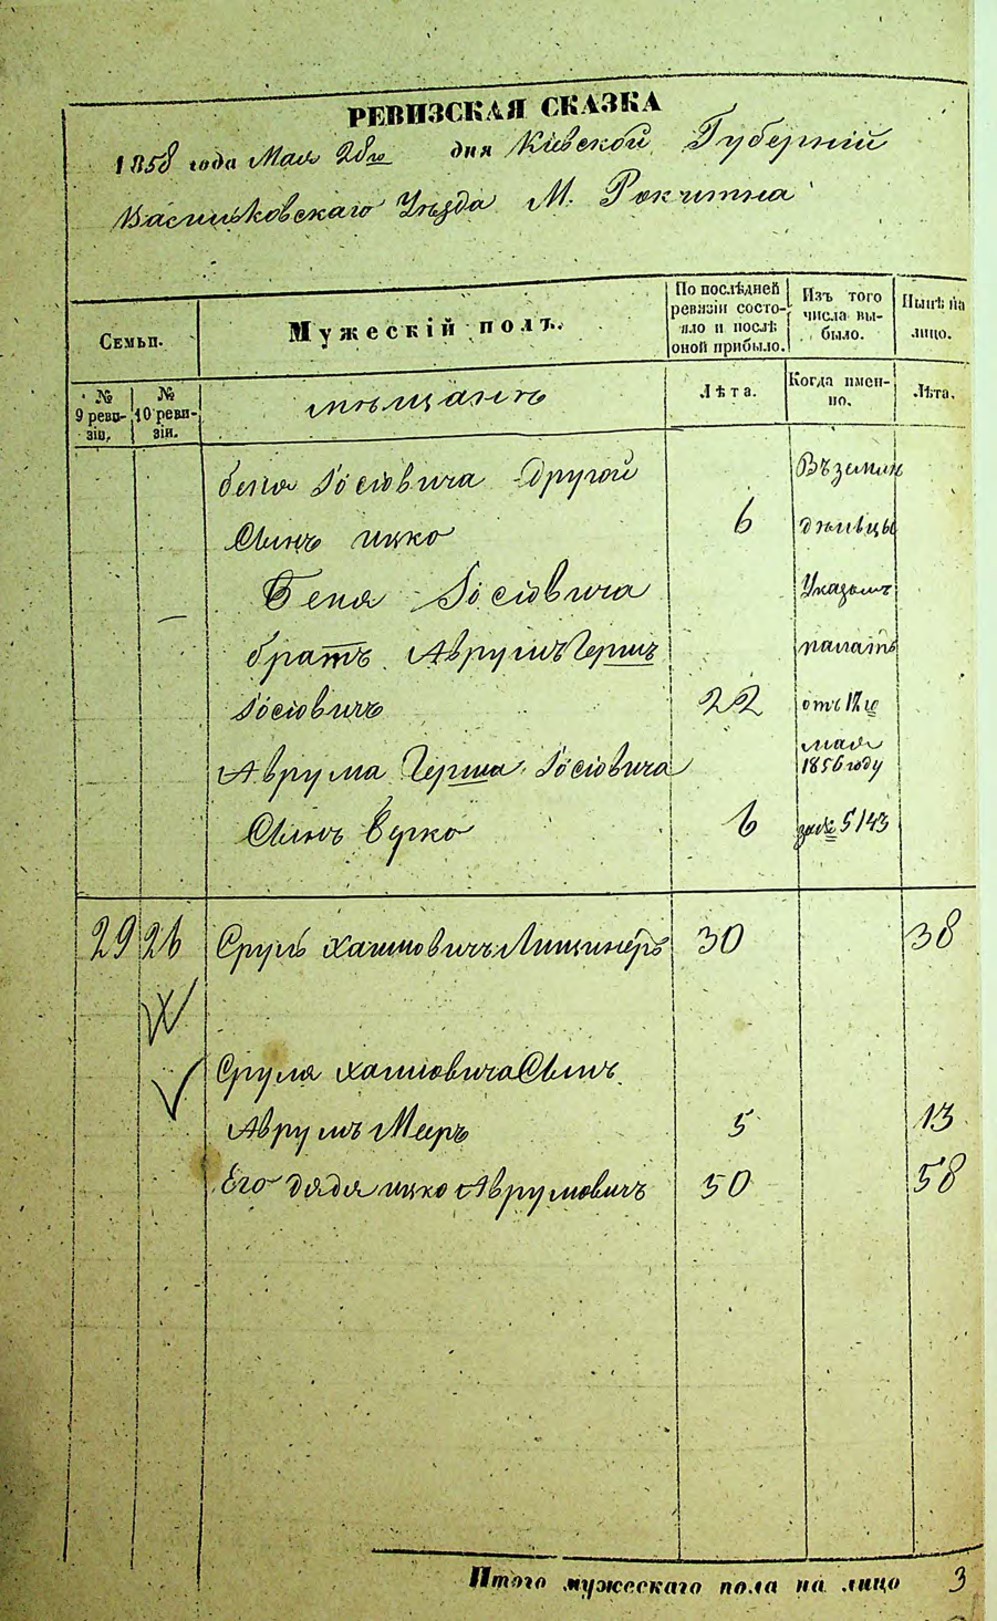 РЕВИЗСКАЯ СКАЗКА
1858 года Мая 28го дня Кіевской Губерніи
Васильковскаго Уѣзда М. Рокитна
Семьи.
Мужескій полъ.
По послѣдней ревизіи состояло и послѣ оной прибыло.
Изъ того числа выбыло.
Нынѣ на лицо.
№ 9 ревизіи.
№ 10 ревизіи.
мѣщанъ
Лѣта.
Когда именно.
Лѣта.
Беня Іосіовича другой
Сынъ ицко 6
Беня Іосіовича
братъ Аврумъ Гершъ
Іосіовичъ 22
Аврума Герша Іосіовича
Сынъ Еурко 6
Въ земле
дѣльцы
Указомъ
палаты
отъ 17го
мая
1856 году
за № 5143
29 26 Сруль Хаимовичъ Лищинеръ 30 38
Сруля Хаимовича Сынъ
Аврумъ Меиръ 5 13
Его дядя ицко Аврумовичъ 50 58
Итого мужескаго пола на лицо 3